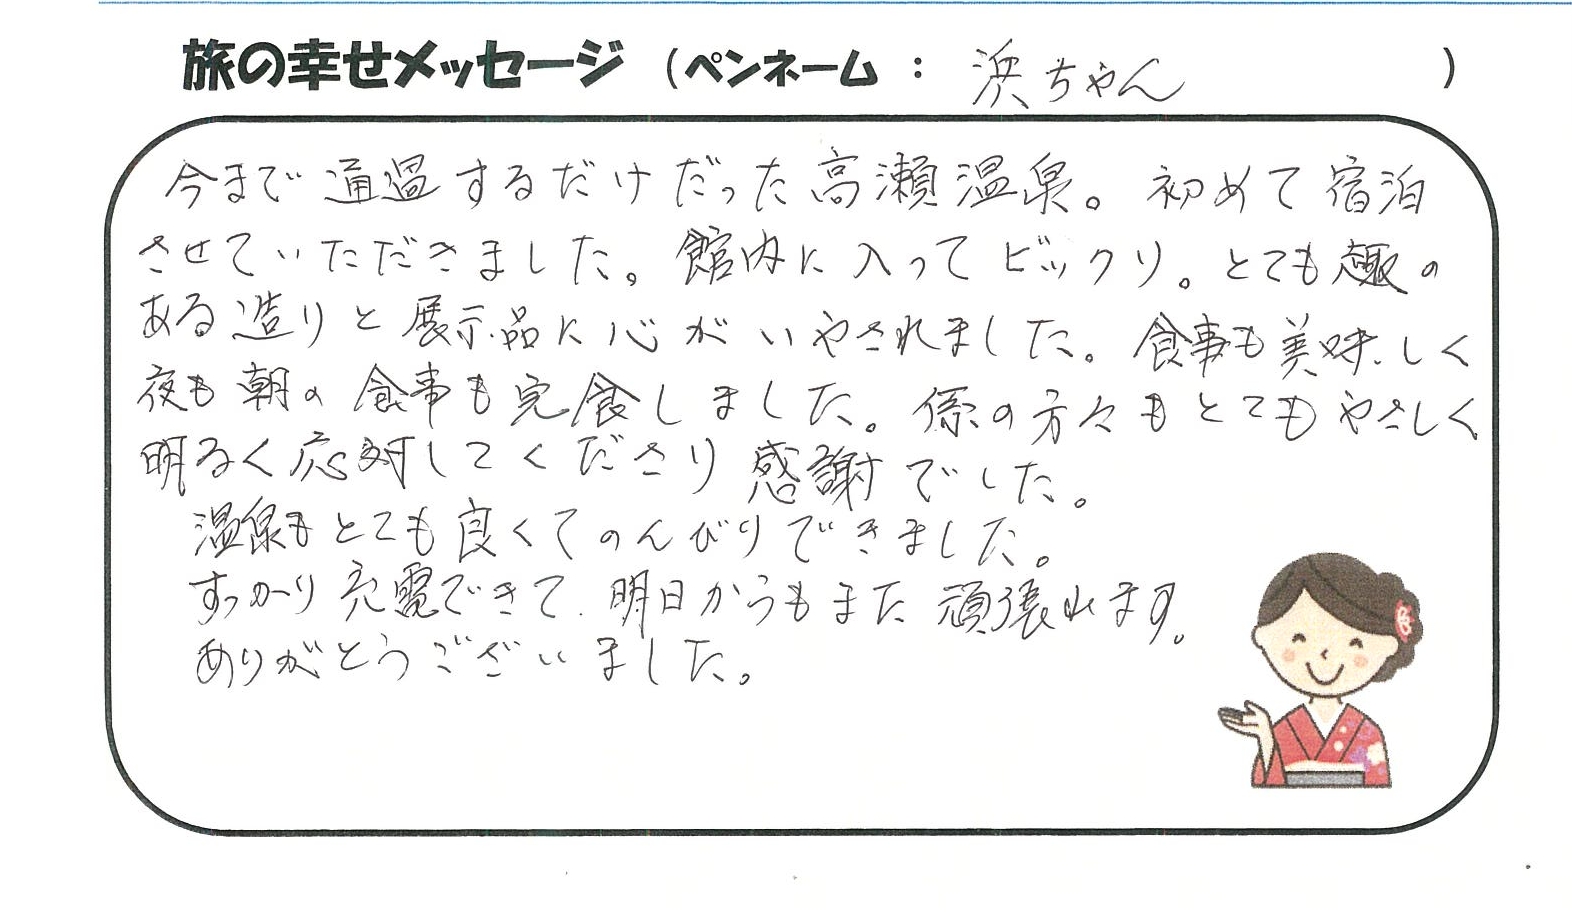 旅の幸せメッセージ（ペンネーム ： 浜ちゃん ）
今まで通過するだけだった高瀬温泉。初めて宿泊
させていただきました。館内に入ってビックリ。とても趣の
ある造りと展示品に心がいやされました。食事も美味しく
夜も朝の食事も完食しました。係の方々もとてもやさしく
明るく応対してくださり感謝でした。
温泉もとても良くてのんびりできました。
すっかり充電できて、明日からもまた頑張れます。
ありがとうございました。